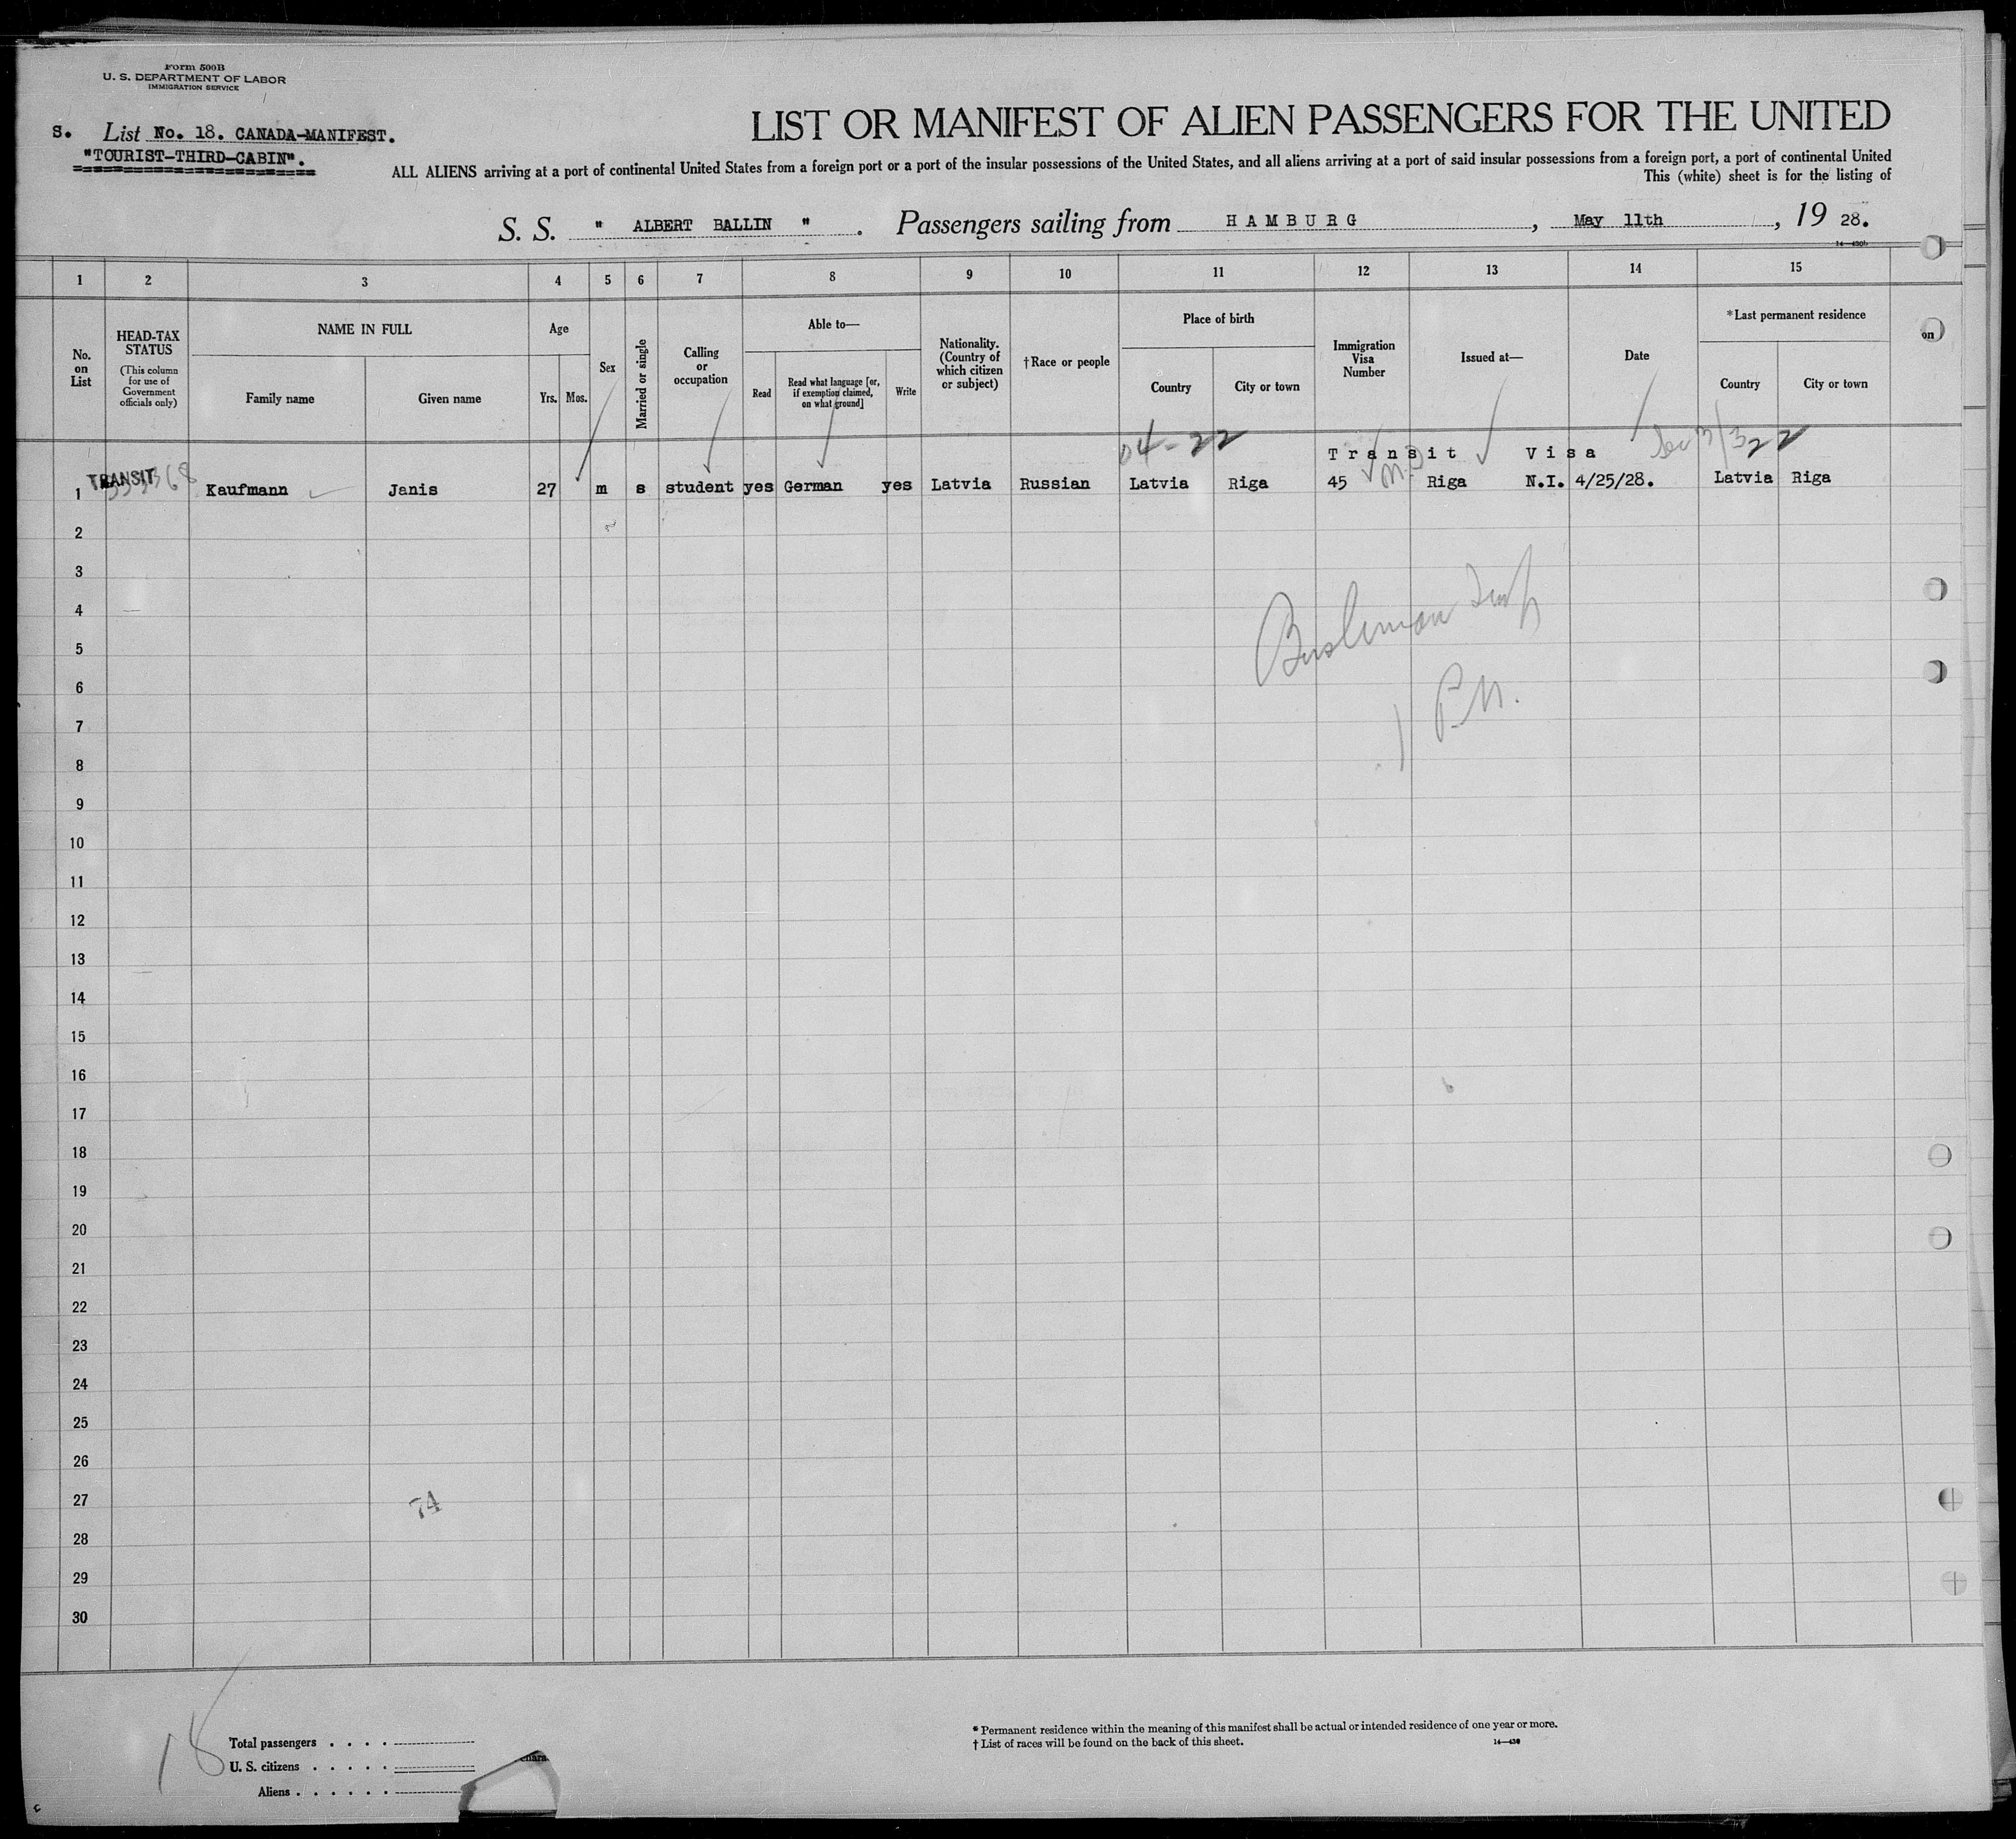 Form 500B
U. S. DEPARTMENT OF LABOR
IMMIGRATION SERVICE
S. List No. 18. CANADA-MANIFEST.
"TOURIST-THIRD-CABIN".
LIST OR MANIFEST OF ALIEN PASSENGERS FOR THE UNITED
ALL ALIENS arriving at a port of continental United States from a foreign port or a port of the insular possessions of the United States, and all aliens arriving at a port of said insular possessions from a foreign port, a port of continental United
This (white) sheet is for the listing of
S. S. " ALBERT BALLIN ". Passengers sailing from HAMBURG, May 11th, 19 28.
14—430b
1 2 3 4 5 6 7 8 9 10 11 12 13 14 15
No. on List
HEAD-TAX STATUS
(This column for use of Government officials only)
NAME IN FULL
Family name
Given name
Age
Yrs. Mos.
Sex
Married or single
Calling or occupation
Able to—
Read
Read what language [or, if exemption claimed, on what ground]
Write
Nationality. (Country of which citizen or subject)
†Race or people
Place of birth
Country
City or town
Immigration Visa Number
Issued at—
Date
*Last permanent residence
Country
City or town
on
04-22
Transit Visa
1 TRANSIT Kaufmann Janis 27 m s student yes German yes Latvia Russian Latvia Riga 45 Riga N.I. 4/25/28. Latvia Riga
2
3
4
5
6
7
8
9
10
11
12
13
14
15
16
17
18
19
20
21
22
23
24
25
26
27
74
28
29
30
18
Total passengers
U. S. citizens
Aliens
* Permanent residence within the meaning of this manifest shall be actual or intended residence of one year or more.
† List of races will be found on the back of this sheet.
14—430